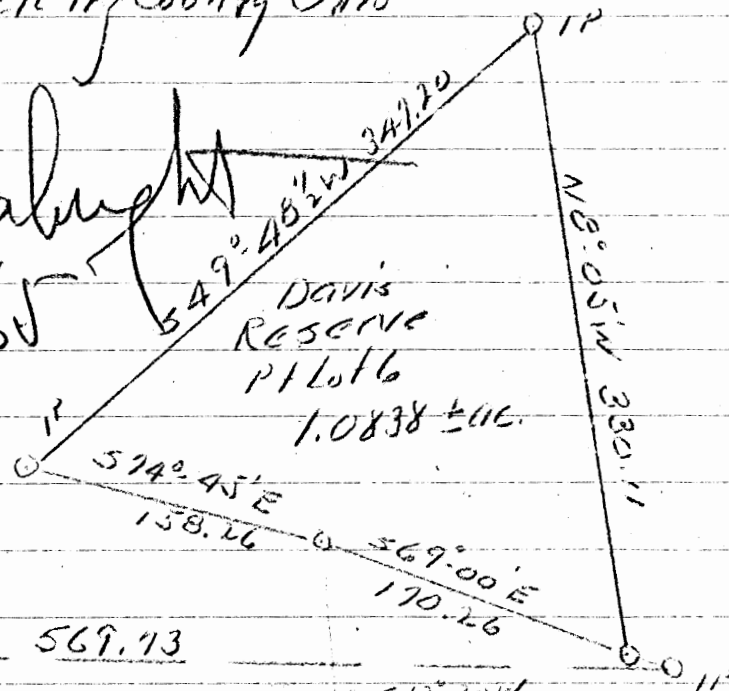 County Ohio
IP
S 49°-48½'W 347.20
N 8°-05'W 330.11
Davis
Reserve
Pt Lot 6
1.0838 ± ac.
IP
S 74°-45'E
158.26
S 69°-00'E
170.26
569.73